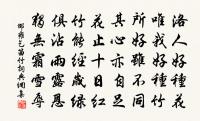 洛人好種花
唯我好種竹
所好雖不同
其心亦自足
花止十日紅
竹能經歲綠
俱沾雨露恩
獨無霜雪辱
邵雍乞笛竹